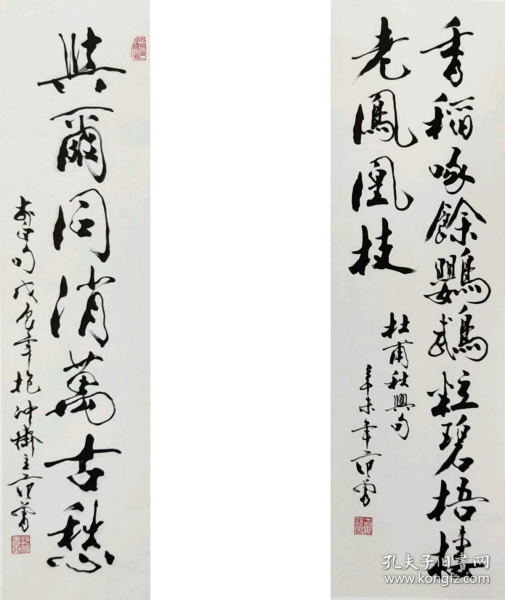 香稻啄餘鸚鵡粒碧梧棲
老鳳凰枝
杜甫秋興句
辛未年范曾
與爾同消萬古愁
李白句戊辰年抱冲齋主范曾
孔夫子旧书网
www.kongfz.com